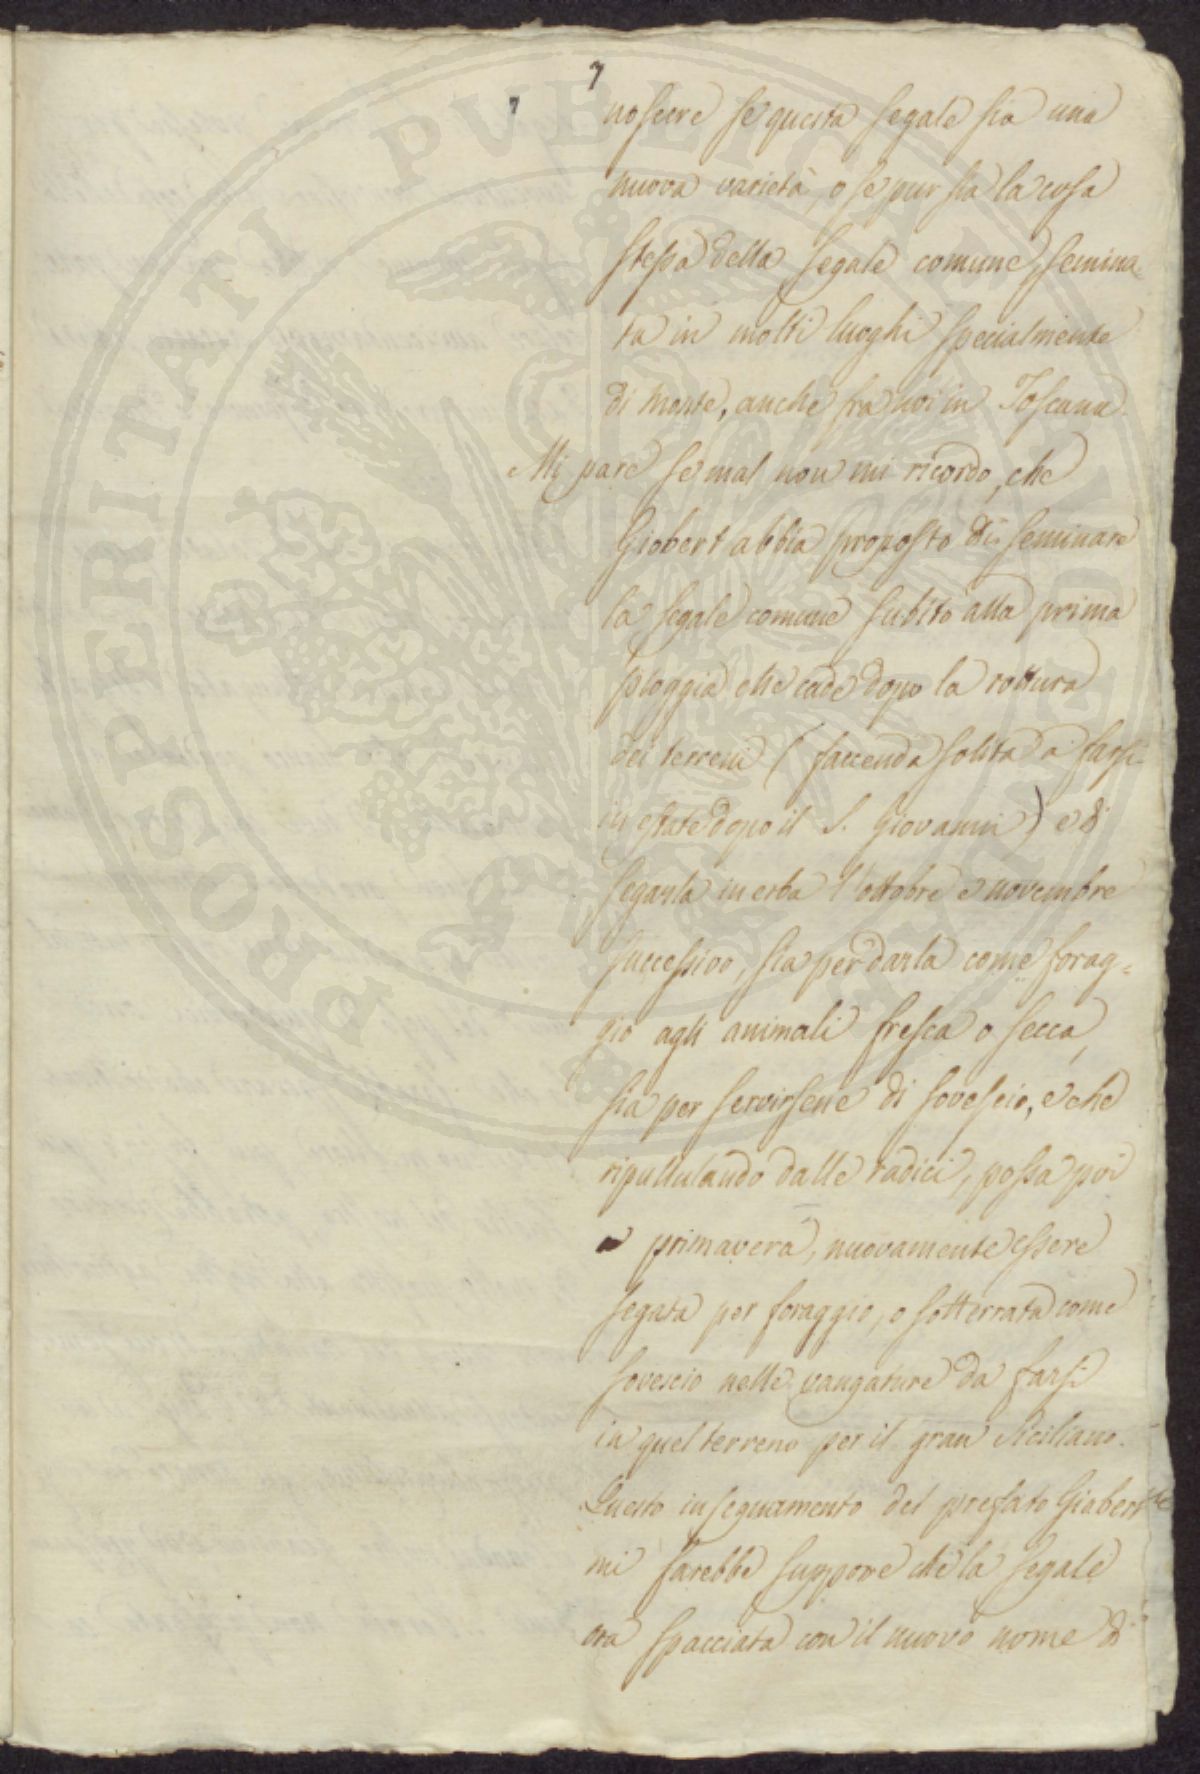 7
noscere se questa segale sia una
nuova varietà, o se pur sia la cosa
stessa della segale comune, semina=
ta in molti luoghi specialmente
di monte, anche fra noi in Toscana.
Mi pare se mal non mi ricordo, che
Giobert abbia proposto di seminare
la segale comune subito alla prima
pioggia che cade dopo la rottura
dei terreni (faccenda solita a farsi
in estate dopo il S. Giovanni) e di
segarla in erba l'ottobre e novembre
successivo, sia per darla come forag=
gio agli animali fresca o secca,
sia per servirsene di sovescio, e che
ripullulando dalle radici, possa poi
a primavera, nuovamente essere
segata per foraggio, o sotterrata come
sovescio nelle vangature da farsi
in quel terreno per il gran Siciliano.
Questo insegnamento del prefato Giobert
mi farebbe supporre che la segale
ora spacciata con il nuovo nome di
PROSPERITATI PUBLICAE AUGENDAE